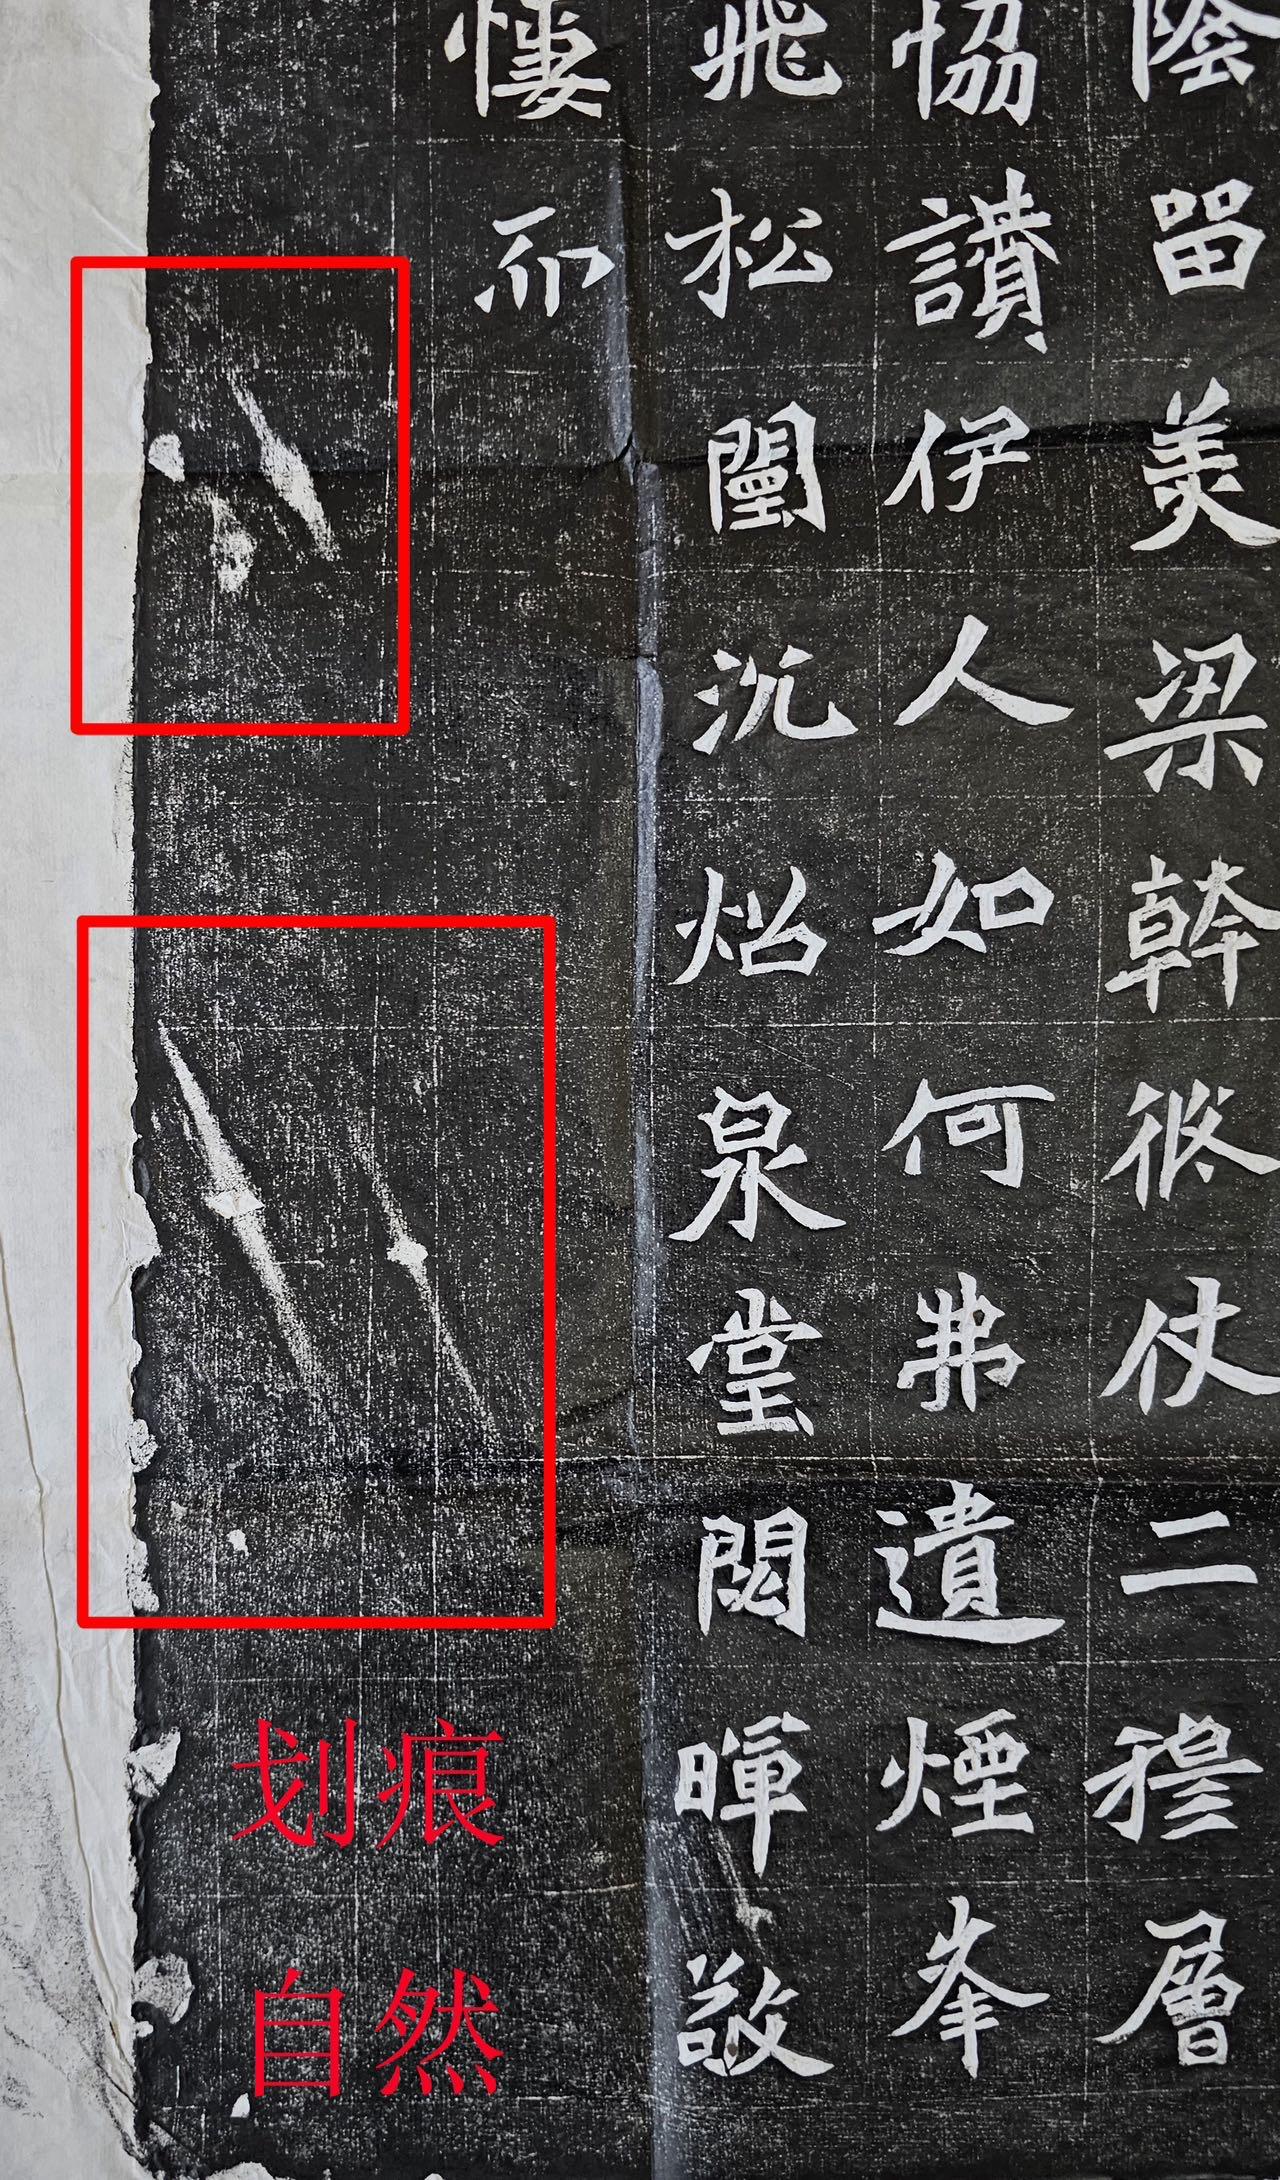 陰留美梁幹修仗二穆層
恊讃伊人如何弗遺煙峯
飛松闉沉炤泉堂閟暉敬
悽而
划痕
自然